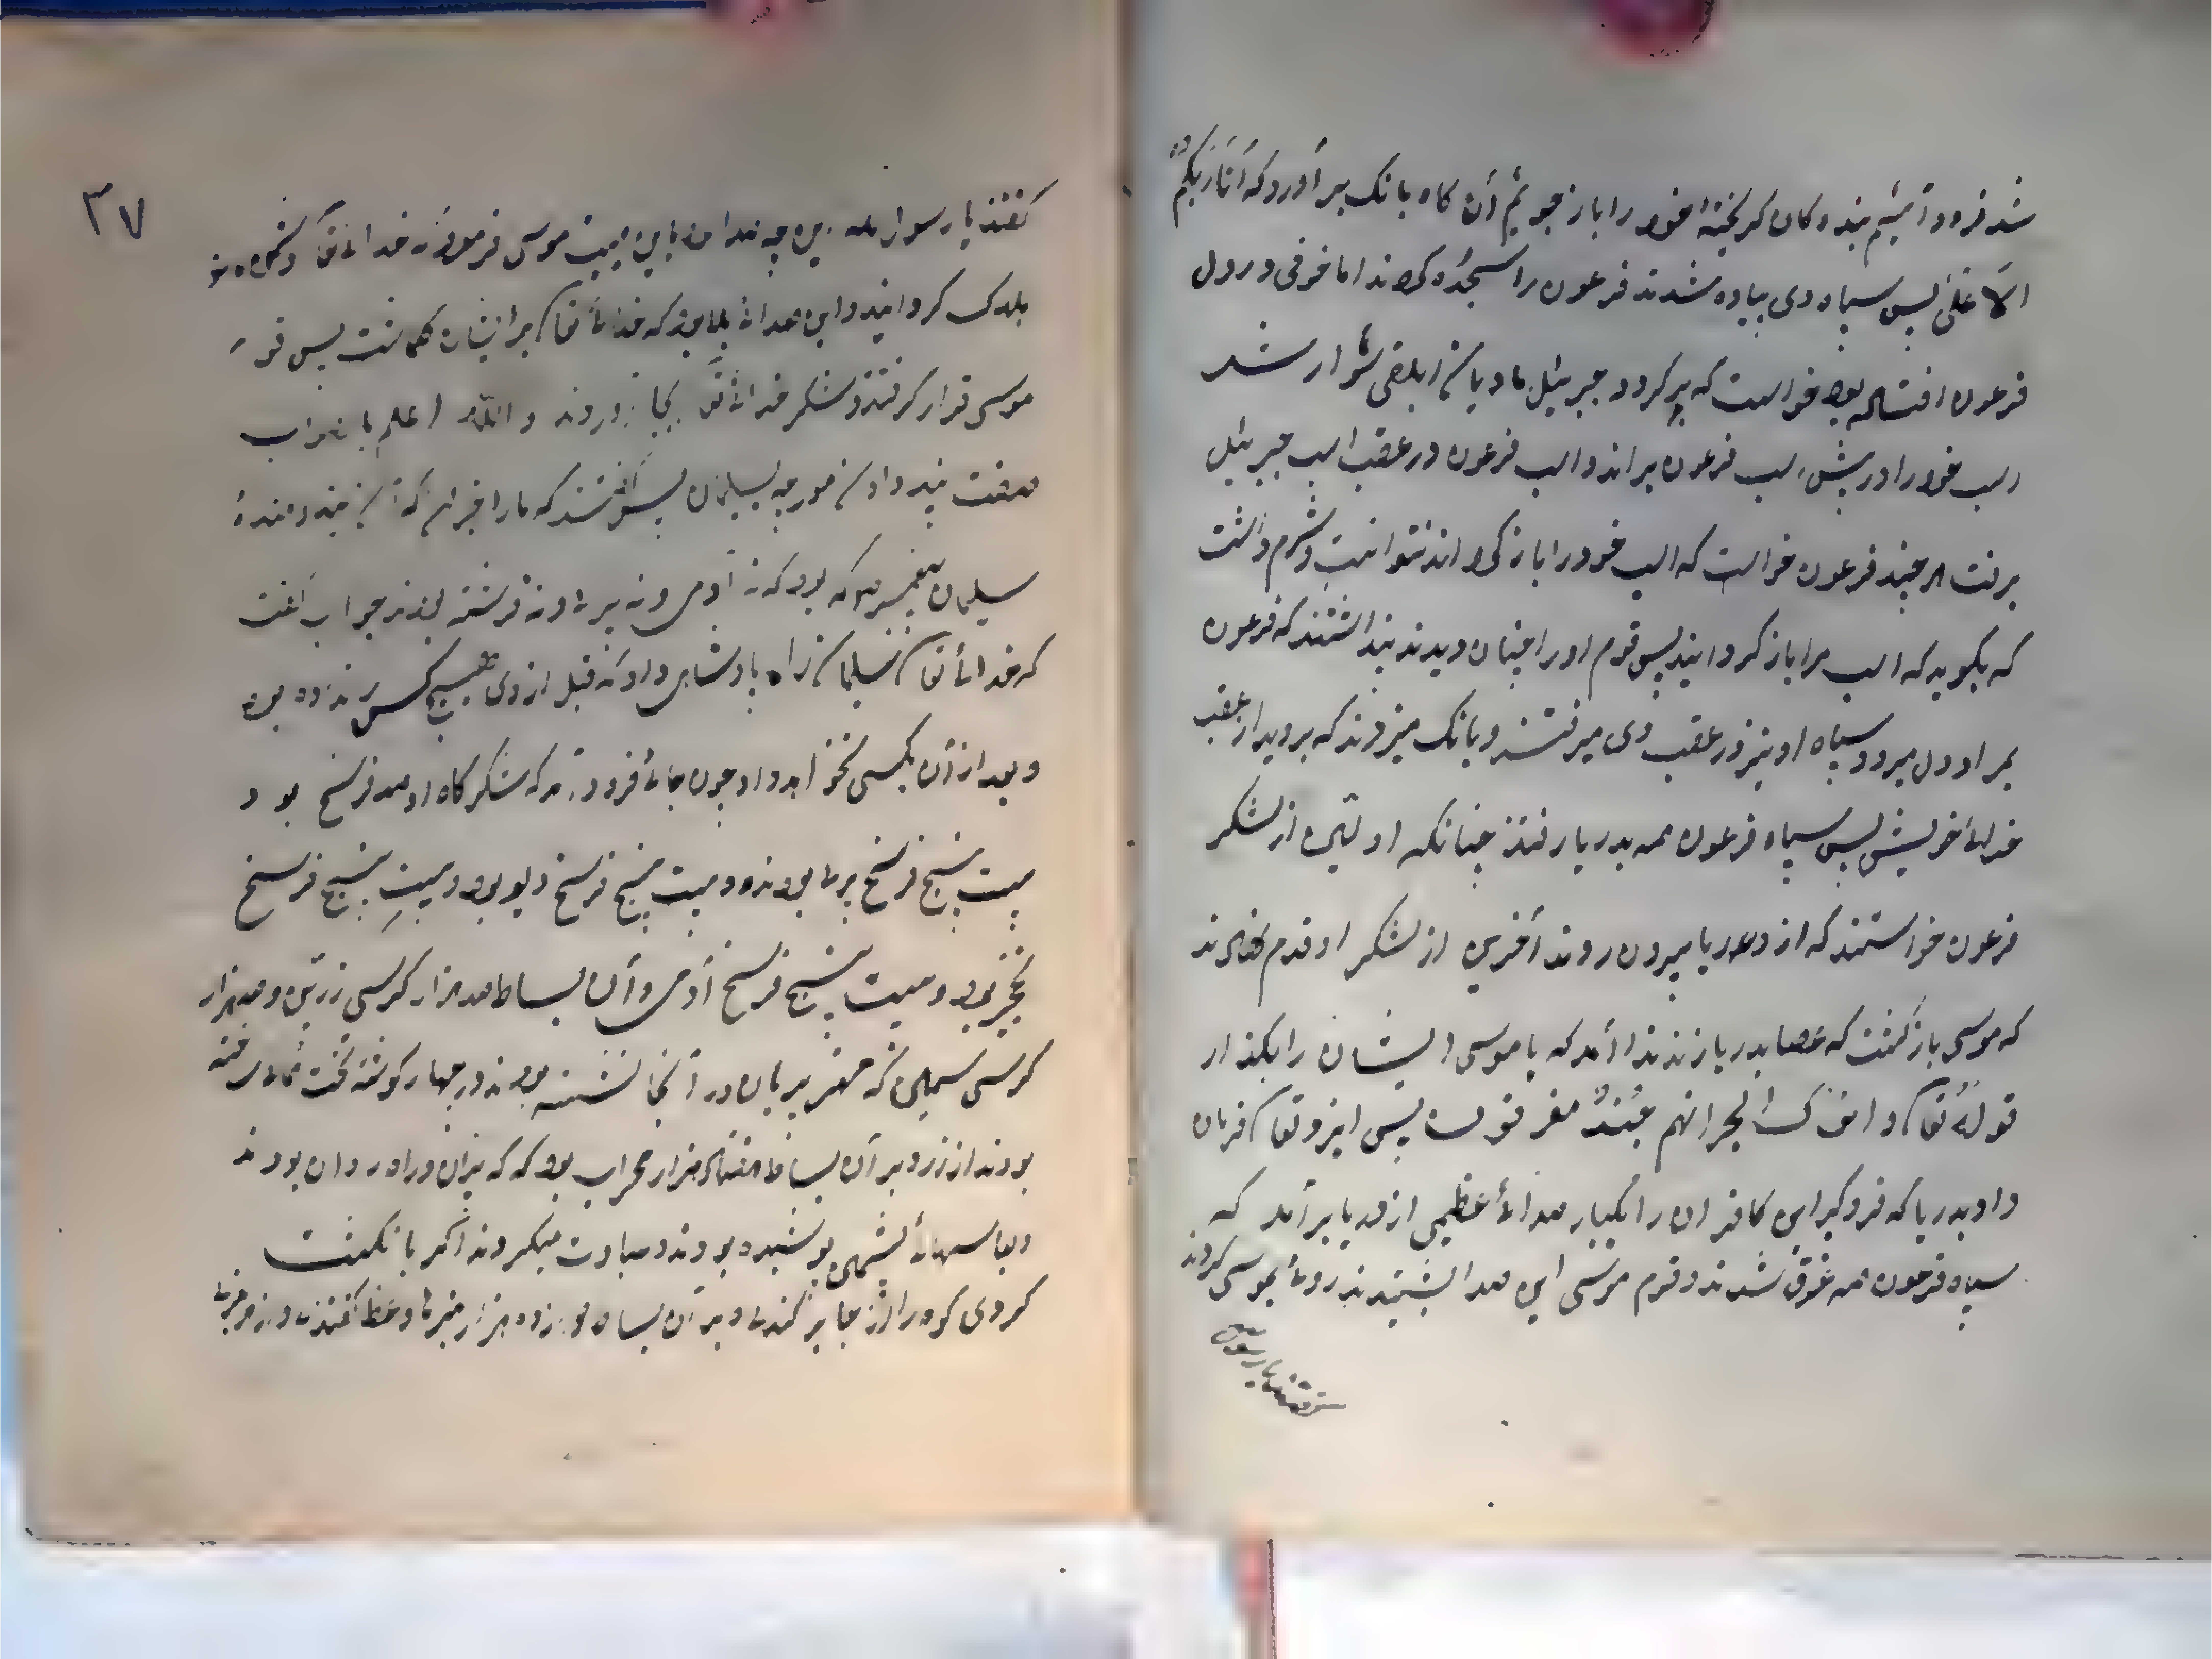 شد فرود آئیم بندگان کریخته خود را باز جوئیم آن کاه بانک برآورد که أَنَا رَبُّکُمُ
الأعلیٰ پس سپاه وی پیاده شدند فرعون را سجده کردند اما خوفی در دل
فرعون افتاده بود خواست که برکردد جبرئیل مادیان ابلقی سوار شد
اسب خود را در پیش اسب فرعون براند و اسب فرعون در عقب اسب جبرئیل
برفت هر چند فرعون خواست که اسب خود را باز کرداند نتوانست و شرم داشت
که بکوید که اسب مرا باز کردانید پس قوم او را چنان دیدند پنداشتند که فرعون
بمراد دل میرود سپاه او نیز در عقب وی میرفتند و بانک میزدند که بروید از عقب
خدای خویش پس سپاه فرعون همه بدریا رفتند چنانکه اولین از لشکر
فرعون خواستند که از دریا بیرون روند آخرین از لشکر او قدم نهادند
که موسی باز کشت که عصا بدریا زند ندا آمد که یا موسی ایشان را بکذار
قوله تعا واترک البحر انهم جُندٌ مغرقون پس ایزد تعا فرمان
داد بدریا که فرو کیر این کافران را یکبار صدائی عظیمی از دریا برآمد که
سپاه فرعون همه غرق شدند و قوم موسی این صدا بشنیدند روی بموسی کردند
گفتند یا رسول
٣٧
کفتند یا رسول الله این چه صدا است باین هیبت موسی فرمود که خدای تعا دشمن
هلاک کردانید و این صدای که خدای تعا بر ایشان کماشت پس قوم
موسی قرار کرفتند و شکر خدای تعا بجا آوردند والله اعلم بالصواب
صفت پند دادن مورچه سلیمان پس کفتند که ما را خبر ده که آن پند دهنده
سلیمان پیغمبر که بود که نه آدمی و نه پری و نه فرشته بودند جواب کفت
که خدای تعا سلیمان را پادشاهی داد که قبل از وی هیچ کس نداده بود
و بعد از آن بکسی نخواهد داد چون جائی فرود آمد که لشکرکاه او صد فرسخ بود
بیست پنج فرسخ پری بودند و بیست پنج فرسخ دیو بود و بیست پنج فرسخ
نخجیر بود و بیست پنج فرسخ آدمی و آن بساط صد هزار کرسی زرین و صد هزار
کرسی سیمین که مهتر پریان در آنجا نشسته بودند در چهار کوشه تخت
بودند از زر و بر آن بساط هفتاد هزار محراب بود که در آن
و لباسهای پشمین پوشیده بودند و عبادت میکردند اکر بانکشت
کردی کوه را از جا برکندی و بر آن بساط دوازده هزار منبر وعظ کفتندی